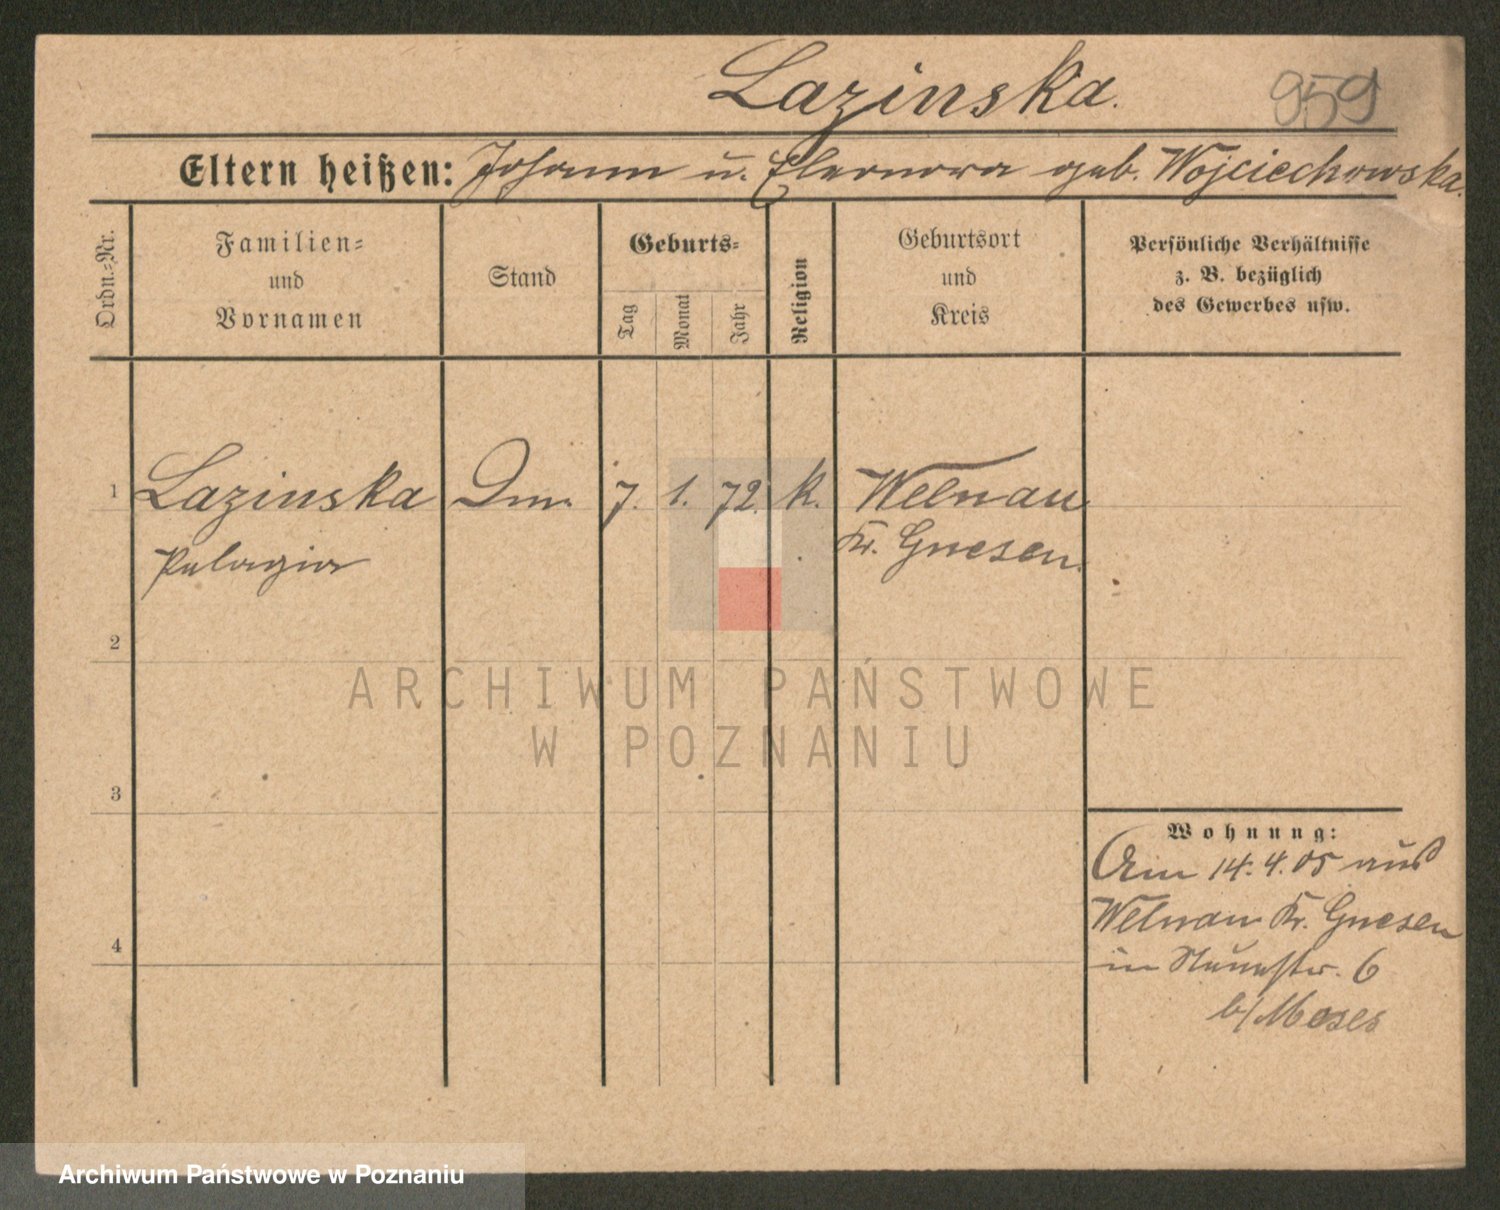 Lazinska.
959
Eltern heißen: Johann u. Eleonora geb. Wojciechowska.
Ordn.=Nr.
Familien=
und
Vornamen
Stand
Geburts=
Tag
Monat
Jahr
Religion
Geburtsort
und
Kreis
Persönliche Verhältnisse
z. B. bezüglich
des Gewerbes usw.
1 Lazinska 7. 1. 72. k. Welnau
Pelagia Kr. Gnesen.
2
3
4
Wohnung:
Am 14.4.05 aus
Welnau Kr. Gnesen
in Neuestr. 6
b/ Moses
ARCHIWUM PAŃSTWOWE
W POZNANIU
Archiwum Państwowe w Poznaniu